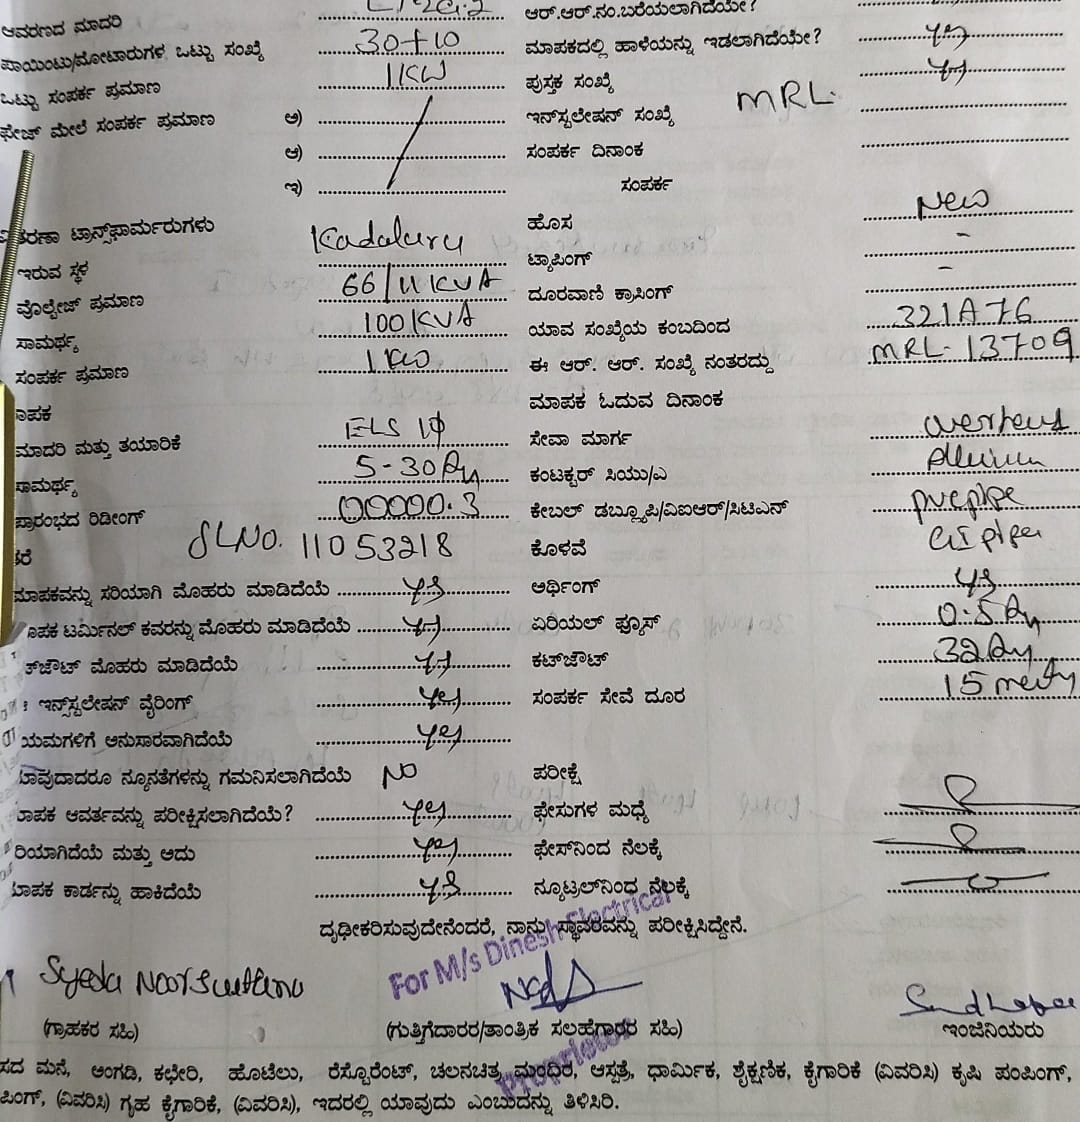 ಆವರಣದ ಮಾದರಿ ಆರ್.ಆರ್.ನಂ.ಬರೆಯಲಾಗಿದೆಯೇ?
ಪಾಯಿಂಟು/ಮೋಟಾರುಗಳ ಒಟ್ಟು ಸಂಖ್ಯೆ 30+10 ಮಾಪಕದಲ್ಲಿ ಹಾಳೆಯನ್ನು ಇಡಲಾಗಿದೆಯೇ? yes
ಒಟ್ಟು ಸಂಪರ್ಕ ಪ್ರಮಾಣ 1KW ಪುಸ್ತಕ ಸಂಖ್ಯೆ yes
ಫೇಜ್ ಮೇಲೆ ಸಂಪರ್ಕ ಪ್ರಮಾಣ ಅ) ಇನ್‌ಸ್ಟಲೇಷನ್ ಸಂಖ್ಯೆ MRL.
ಆ) ಸಂಪರ್ಕ ದಿನಾಂಕ
ಇ) ಸಂಪರ್ಕ
ತರಣಾ ಟ್ರಾನ್ಸ್‌ಫಾರ್ಮರುಗಳು ಹೊಸ New
ಇರುವ ಸ್ಥಳ Kadaluru ಟ್ಯಾಪಿಂಗ್ -
ವೊಲ್ಟೇಜ್ ಪ್ರಮಾಣ 66/11KVA ದೂರವಾಣಿ ಕ್ರಾಸಿಂಗ್ -
ಸಾಮರ್ಥ್ಯ 100KVA ಯಾವ ಸಂಖ್ಯೆಯ ಕಂಬದಿಂದ 321A76
ಸಂಪರ್ಕ ಪ್ರಮಾಣ 1KW ಈ ಆರ್. ಆರ್. ಸಂಖ್ಯೆ ನಂತರದ್ದು MRL-13709
ಾಪಕ ಮಾಪಕ ಓದುವ ದಿನಾಂಕ
ಮಾದರಿ ಮತ್ತು ತಯಾರಿಕೆ ELS 1ϕ ಸೇವಾ ಮಾರ್ಗ overhead
ಸಾಮರ್ಥ್ಯ 5-30 ಕಂಟಕ್ಟರ್ ಸಿಯು/ಎ
ಪ್ರಾರಂಭದ ರಿಡೀಂಗ್ 00000.3 ಕೇಬಲ್ ಡಬ್ಲ್ಯೂಪಿ/ವಿಐಆರ್/ಸಿಟಿಎನ್ pvcpipe
ತರೆ SLNO. 11053218 ಕೊಳವೆ GI pipe
ಮಾಪಕವನ್ನು ಸರಿಯಾಗಿ ಮೊಹರು ಮಾಡಿದೆಯೆ yes ಆರ್ಥಿಂಗ್ yes
ಾಪಕ ಟರ್ಮಿನಲ್ ಕವರನ್ನು ಮೊಹರು ಮಾಡಿದೆಯೆ yes ಏರಿಯಲ್ ಫ್ಯೂಸ್ 0.5
ತ್‌ಔಟ್ ಮೊಹರು ಮಾಡಿದೆಯೆ yes ಕಟ್‌ಔಟ್ 32
ಇನ್‌ಸ್ಟಲೇಷನ್ ವೈರಿಂಗ್ yes ಸಂಪರ್ಕ ಸೇವೆ ದೂರ 15
ಯಮಗಳಿಗೆ ಅನುಸಾರವಾಗಿದೆಯೆ yes
ಾವುದಾದರೂ ನ್ಯೂನತೆಗಳನ್ನು ಗಮನಿಸಲಾಗಿದೆಯೆ NO ಪರೀಕ್ಷೆ
ಾಪಕ ಆವರ್ತವನ್ನು ಪರೀಕ್ಷಿಸಲಾಗಿದೆಯೆ? yes ಫೇಸುಗಳ ಮಧ್ಯೆ
ರಿಯಾಗಿದೆಯೆ ಮತ್ತು ಅದು yes ಫೇಸ್‌ನಿಂದ ನೆಲಕ್ಕೆ
ಾಪಕ ಕಾರ್ಡನ್ನು ಹಾಕಿದೆಯೆ yes ನ್ಯೂಟ್ರಲ್‌ನಿಂದ ನೆಲಕ್ಕೆ
ದೃಢೀಕರಿಸುವುದೇನೆಂದರೆ, ನಾನು ಸ್ಥಾವರವನ್ನು ಪರೀಕ್ಷಿಸಿದ್ದೇನೆ.
For M/s Dinesh Electrical
Syeda Noor Sulthana
(ಗ್ರಾಹಕರ ಸಹಿ) (ಗುತ್ತಿಗೆದಾರರ/ತಾಂತ್ರಿಕ ಸಲಹೆಗಾರರ ಸಹಿ) ಇಂಜಿನಿಯರು
Proprietor
ಸದ ಮನೆ, ಅಂಗಡಿ, ಕಛೇರಿ, ಹೊಟೆಲು, ರೆಸ್ಟೊರೆಂಟ್, ಚಲನಚಿತ್ರ ಮಂದಿರ, ಆಸ್ಪತ್ರೆ, ಧಾರ್ಮಿಕ, ಶೈಕ್ಷಣಿಕ, ಕೈಗಾರಿಕೆ (ವಿವರಿಸಿ) ಕೃಷಿ ಪಂಪಿಂಗ್,
ಪಿಂಗ್, (ವಿವರಿಸಿ) ಗೃಹ ಕೈಗಾರಿಕೆ, (ವಿವರಿಸಿ), ಇದರಲ್ಲಿ ಯಾವುದು ಎಂಬುದನ್ನು ತಿಳಿಸಿರಿ.